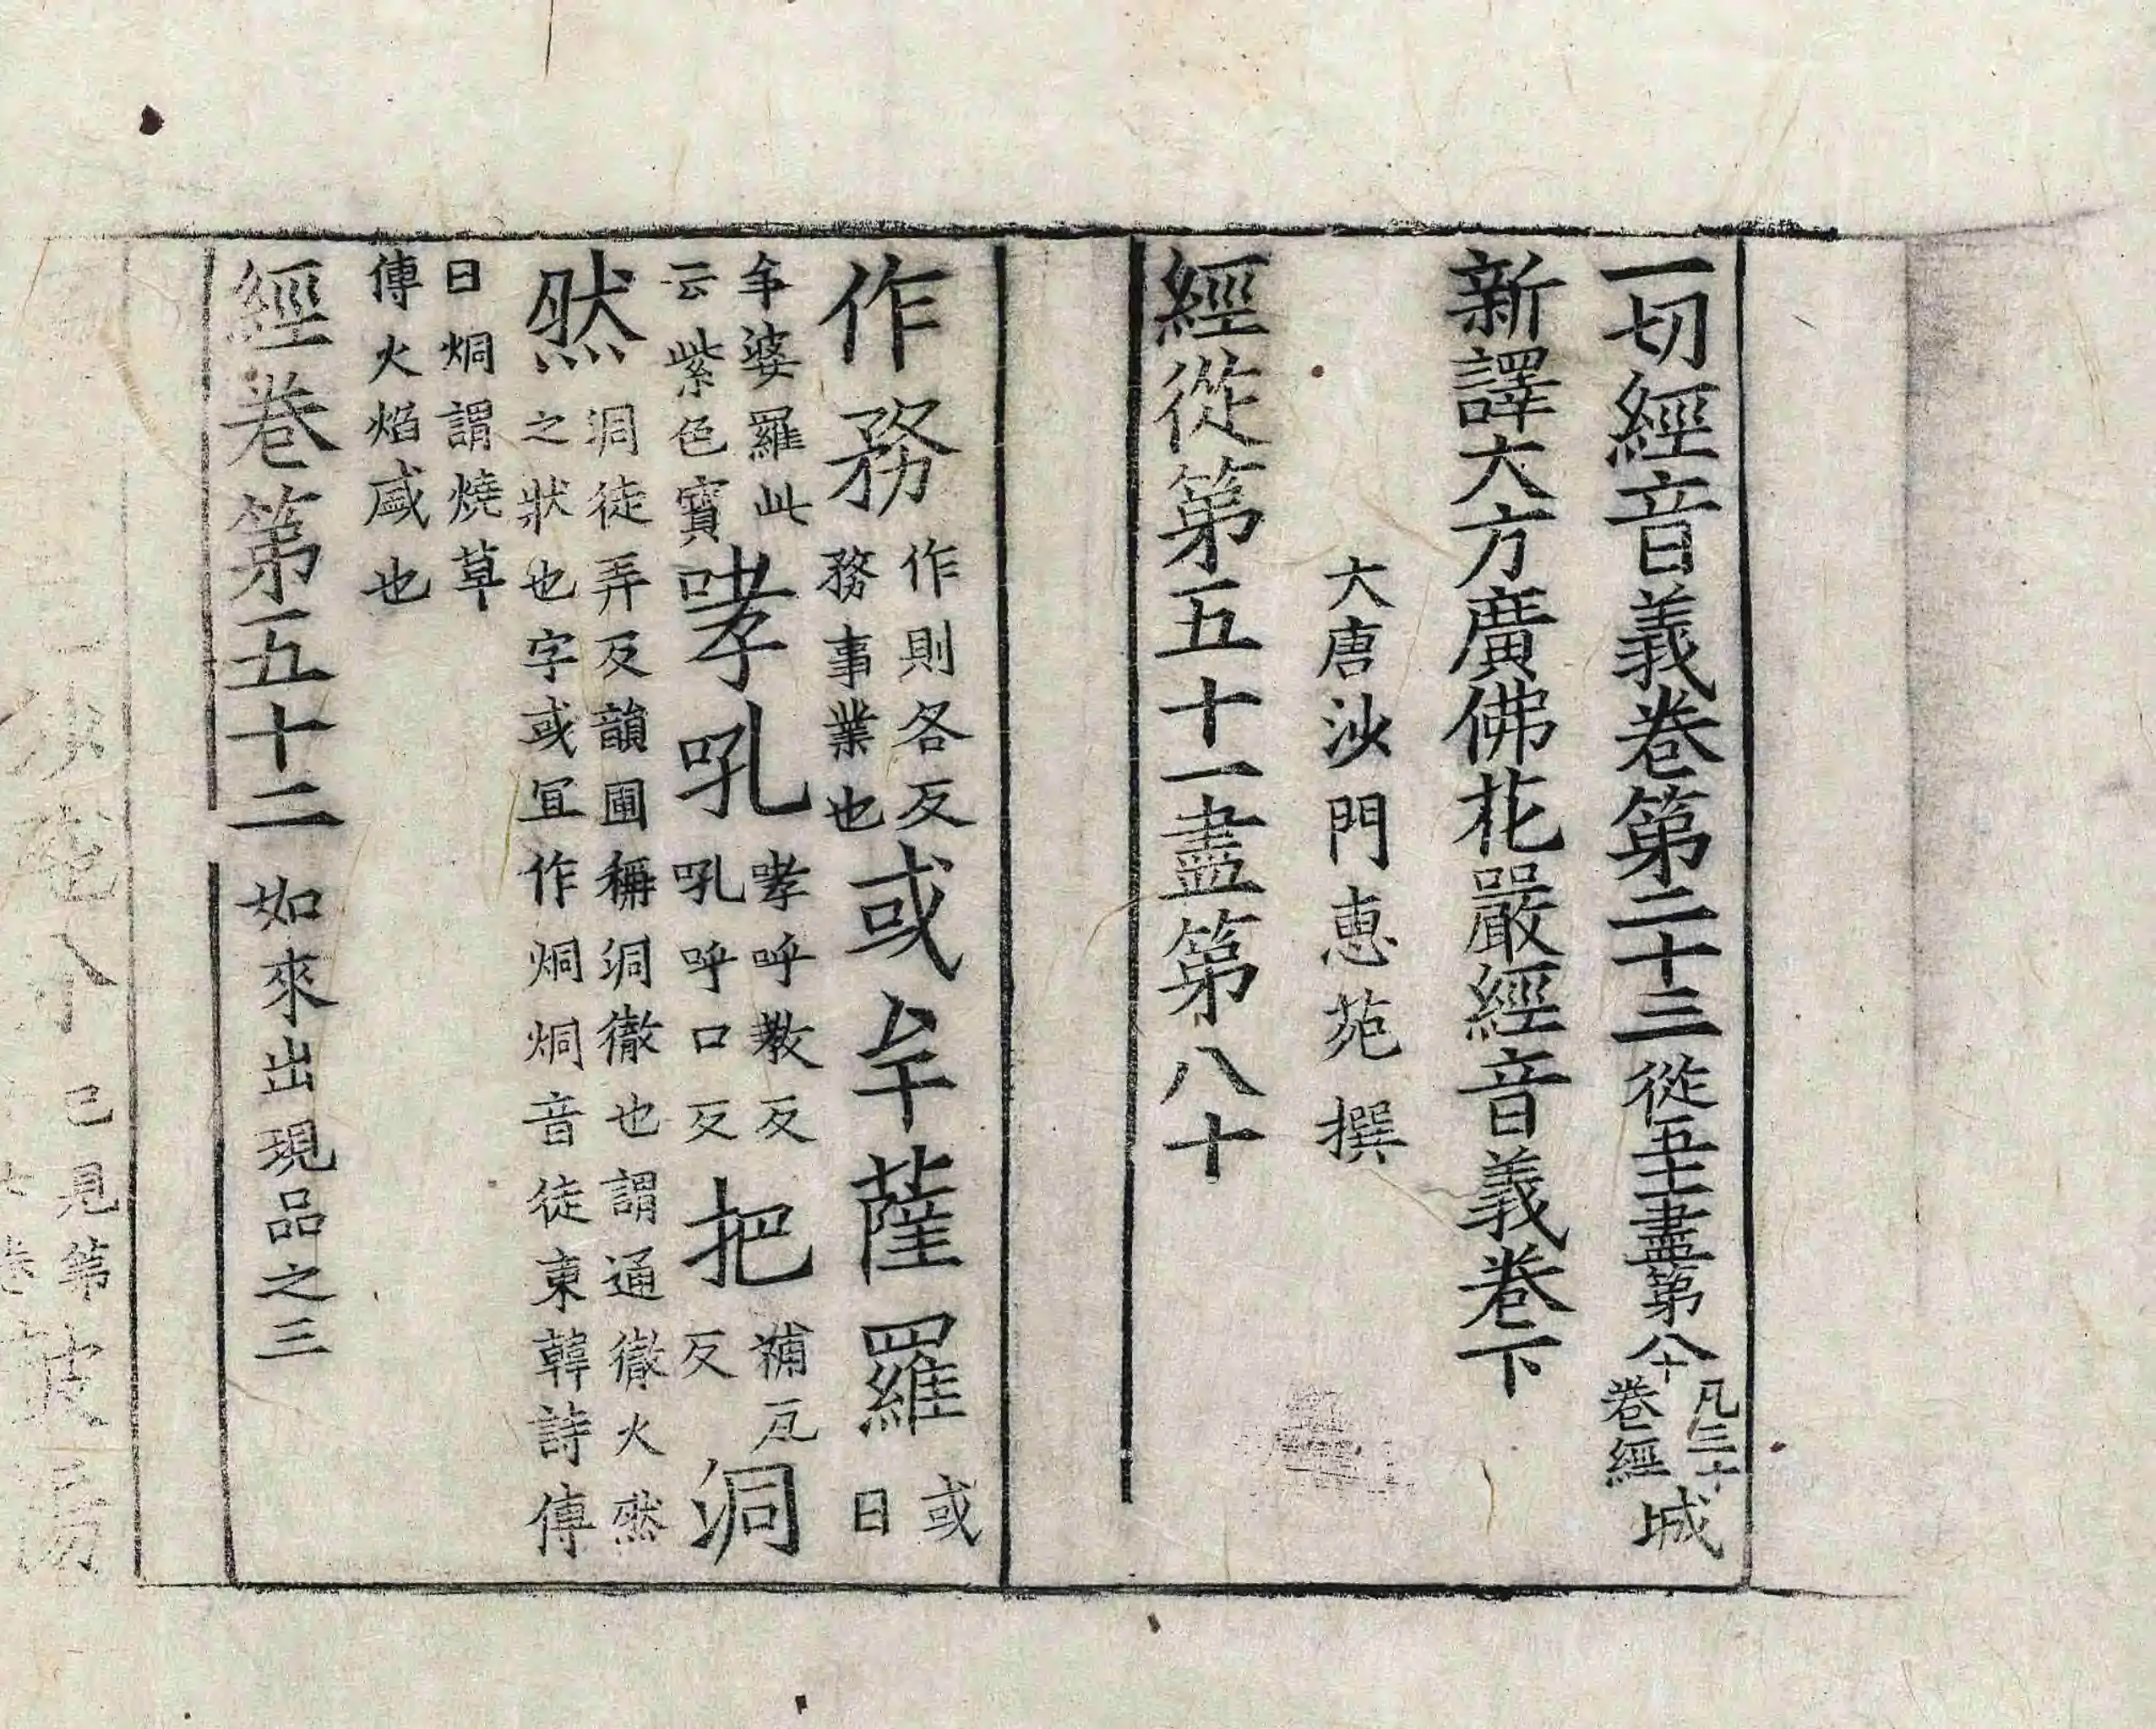 一切經音義卷第二十三 從五十一盡第八十 凡三十卷經 城
新譯大方廣佛花嚴經音義卷下
大唐沙門惠苑撰
經從第五十一盡第八十
作務 作則各反務事業也 或牟薩羅 或曰
牟婆羅此云紫色寶 哮吼 哮呼教反吼呼口反 把 補瓦反 洞
然 洞徒弄反韻圃稱洞徹也謂通徹火然之狀也字或宜作烔烔音徒東韓詩傳
曰烔謂燒草傳火焰盛也
經卷第五十二 如來出現品之三
已見第